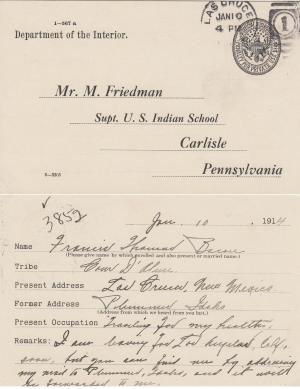 1-567 a
Department of the Interior.
LAS CRUCES
JAN 10
4 PM
1
Mr. M. Friedman
Supt. U. S. Indian School
Carlisle
Pennsylvania
3852
Jan. 10, 1914
Name Francis Thomas Bacon
(Please give name by which enrolled and also present or married name.)
Tribe Coeur D'Alene
Present Address Las Cruces, New Mexico
Former Address Plummer, Idaho
(Address from which we heard from you last.)
Present Occupation Traveling for my health.
Remarks: I am leaving for Los Angeles, Calif.
soon, but you can find me by addressing
my mail to Plummer, Idaho, and it will
be forwarded to me.